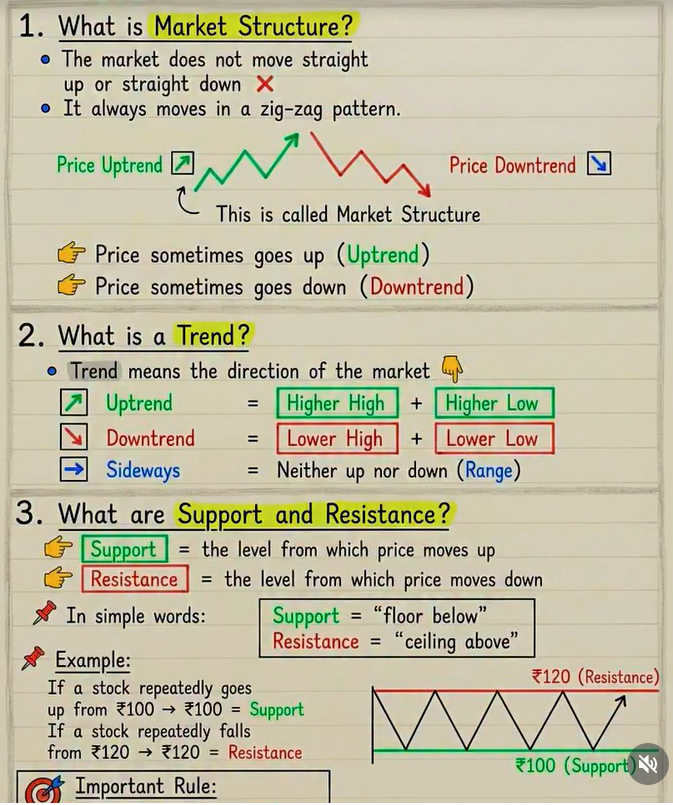 1. What is Market Structure?
• The market does not move straight
up or straight down ❌
• It always moves in a zig-zag pattern.
Price Uptrend
Price Downtrend
This is called Market Structure
👉 Price sometimes goes up (Uptrend)
👉 Price sometimes goes down (Downtrend)
2. What is a Trend?
• Trend means the direction of the market 👇
↗ Uptrend = Higher High + Higher Low
↘ Downtrend = Lower High + Lower Low
→ Sideways = Neither up nor down (Range)
3. What are Support and Resistance?
👉 Support = the level from which price moves up
👉 Resistance = the level from which price moves down
📌 In simple words:
Support = “floor below”
Resistance = “ceiling above”
📌 Example:
If a stock repeatedly goes
up from ₹100 → ₹100 = Support
If a stock repeatedly falls
from ₹120 → ₹120 = Resistance
₹120 (Resistance)
₹100 (Support)
🎯 Important Rule: